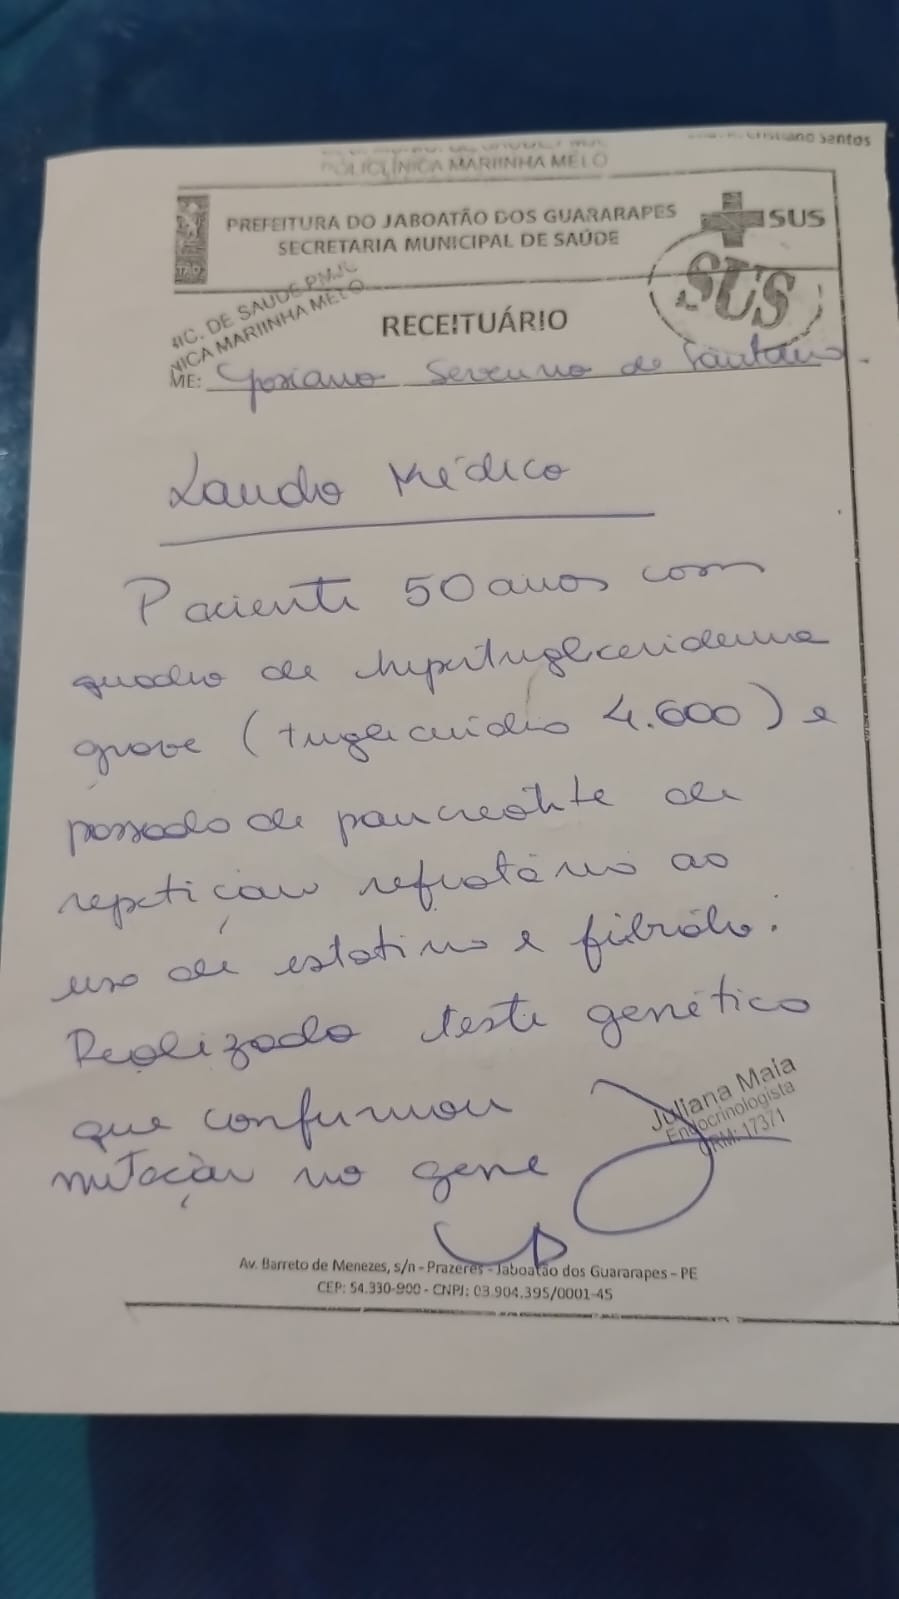 Cristiano Santos
POLICLÍNICA MARIINHA MELO
PREFEITURA DO JABOATÃO DOS GUARARAPES
SECRETARIA MUNICIPAL DE SAÚDE
SUS
SUS
IC. DE SAUDE PMJG
NICA MARIINHA MELO
RECEITUÁRIO
ME: Severino de Santana
Laudo Médico
Paciente 50 anos com
quadro de hipertrigliceridemia
grave (triglicerídeo 4.600) e
passado de pancreatite de
repetição refratário ao
uso de estatina e fibrato.
Realizado teste genético
que confirmou
mutação no gene
Juliana Maia
Endocrinologista
CRM: 17371
Av. Barreto de Menezes, s/n - Prazeres - Jaboatão dos Guararapes - PE
CEP: 54.330-900 - CNPJ: 03.904.395/0001-45